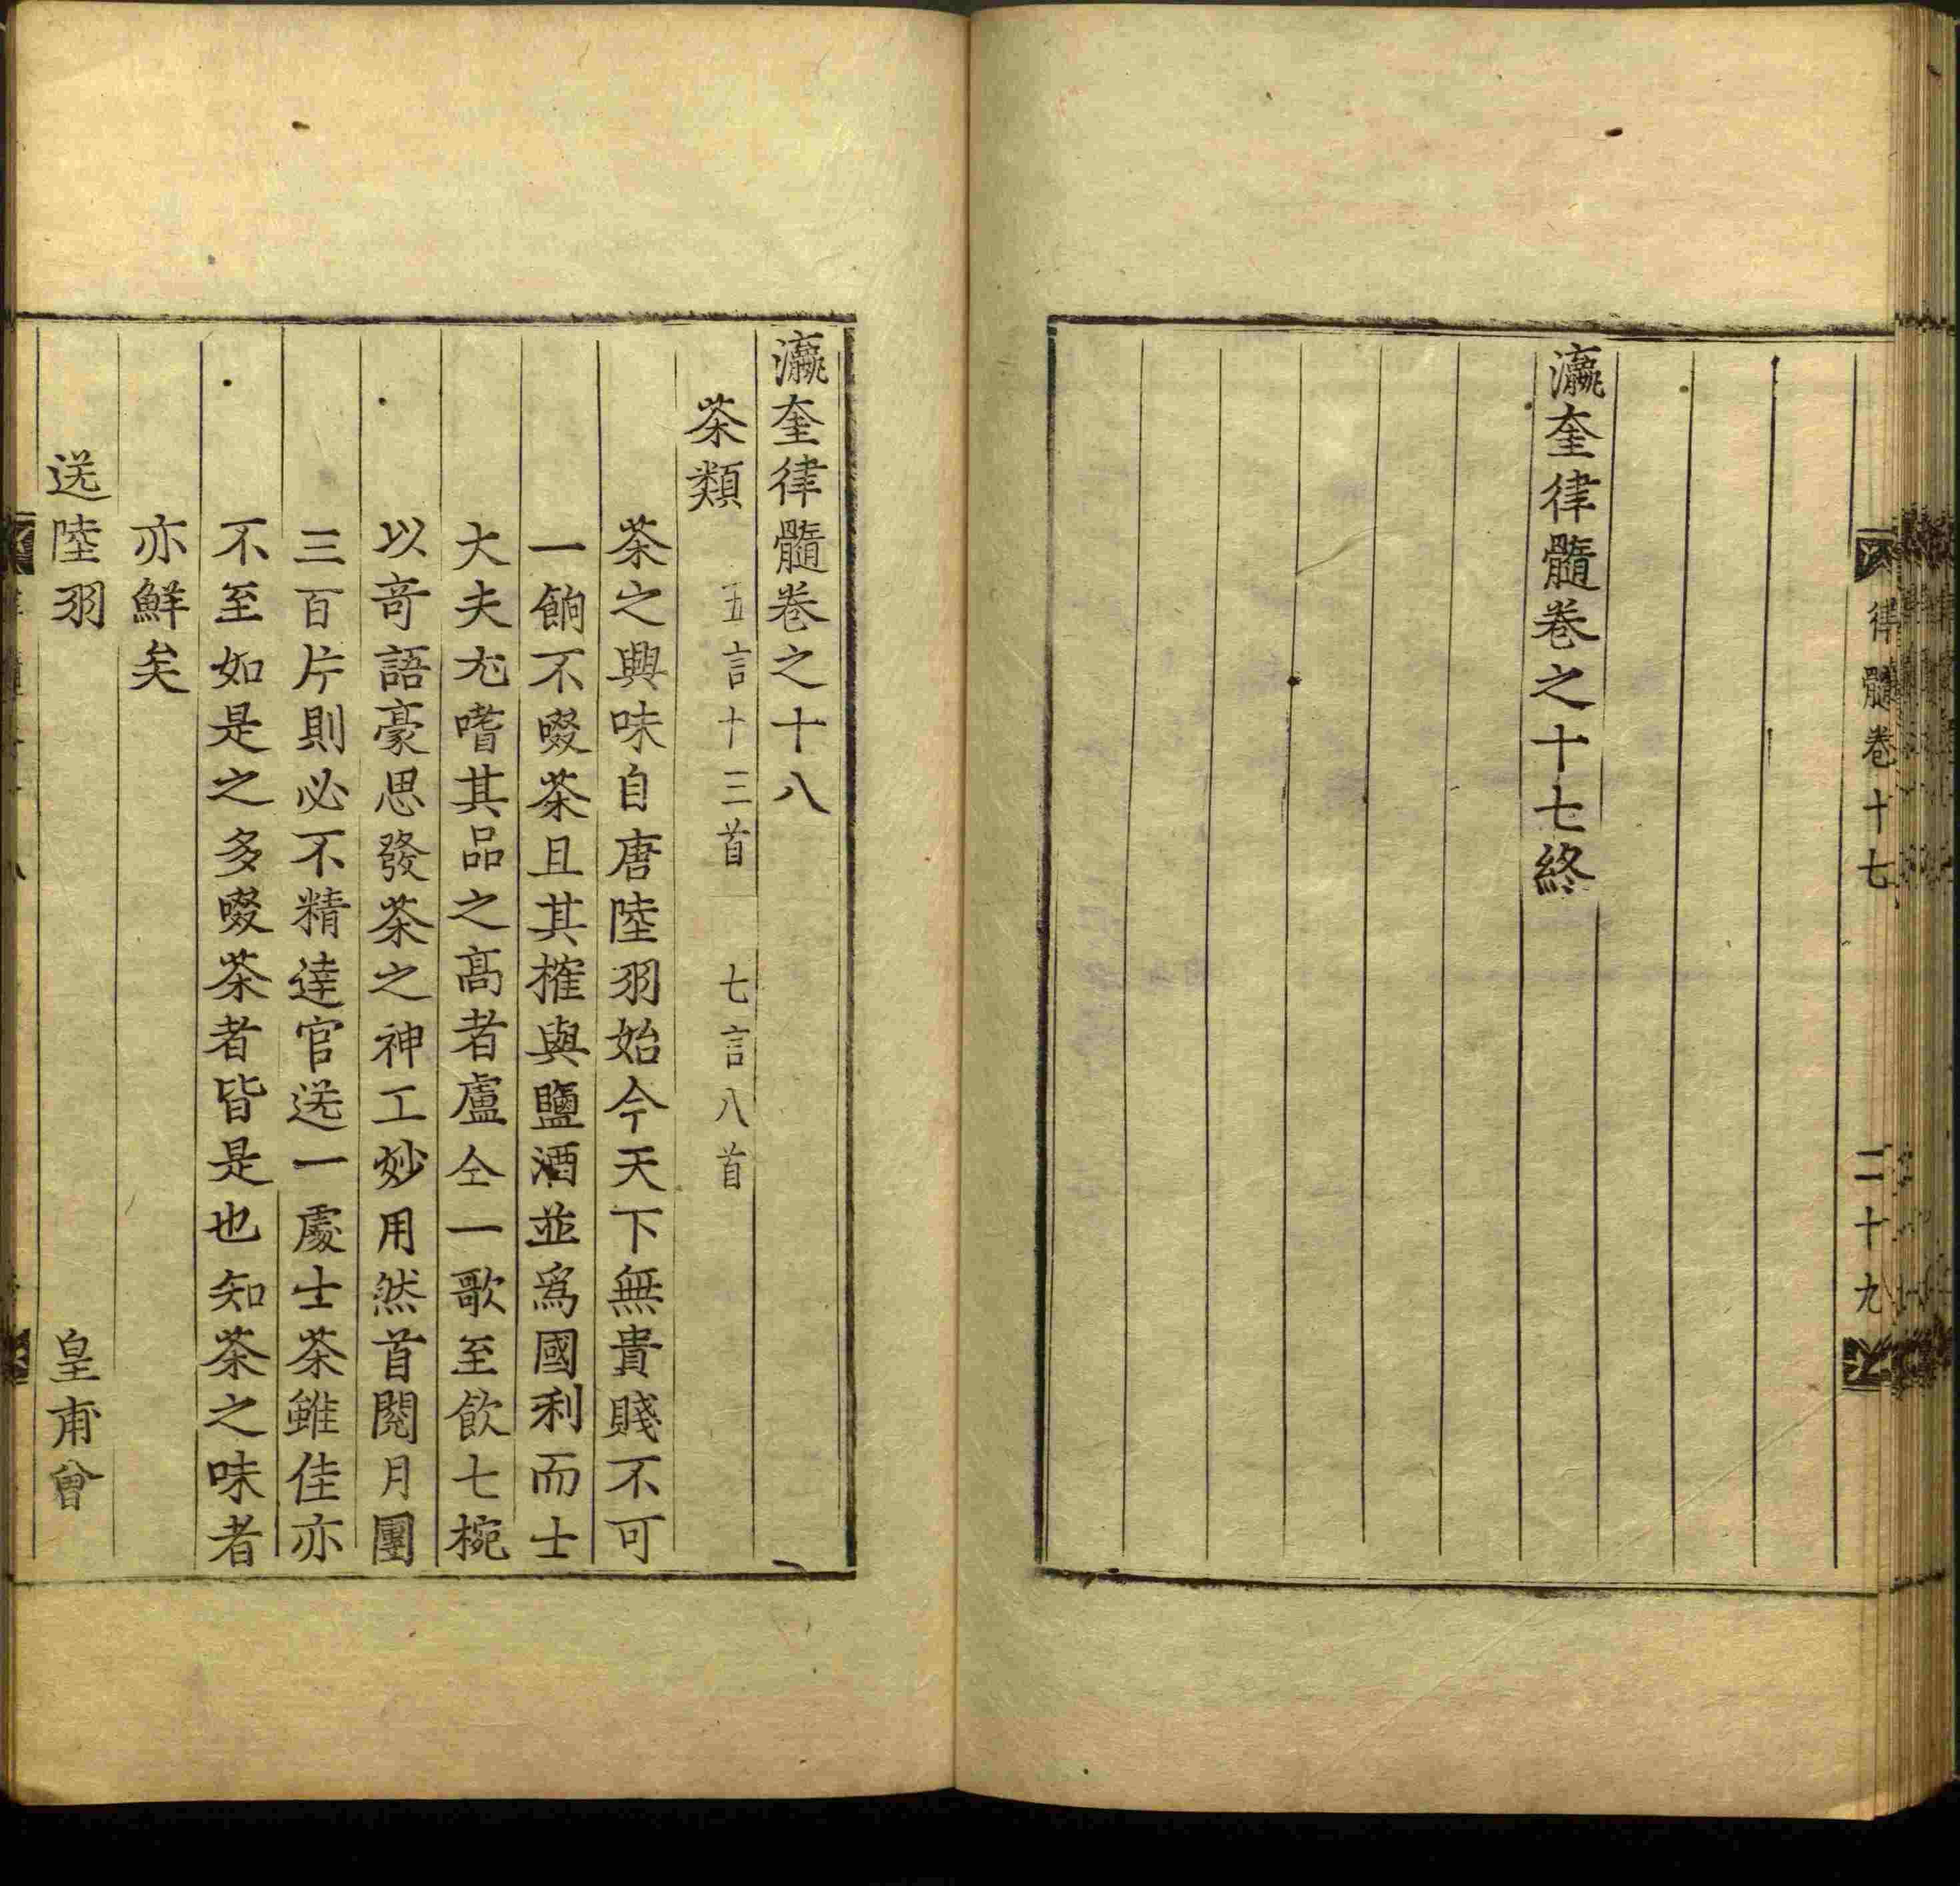 律髓卷十七
二十九
瀛奎律髓卷之十七終
瀛奎律髓卷之十八
茶類 五言十三首 七言八首
茶之興味自唐陸羽始今天下無貴賤不可
一餉不啜茶且其搉與鹽酒並爲國利而士
大夫尤嗜其品之髙者盧仝一歌至飲七椀
以竒語豪思發茶之神工妙用然首閱月團
三百片則必不精逹官送一處士茶雖佳亦
不至如是之多啜茶者皆是也知茶之味者
亦鮮矣
送陸羽 皇甫曾